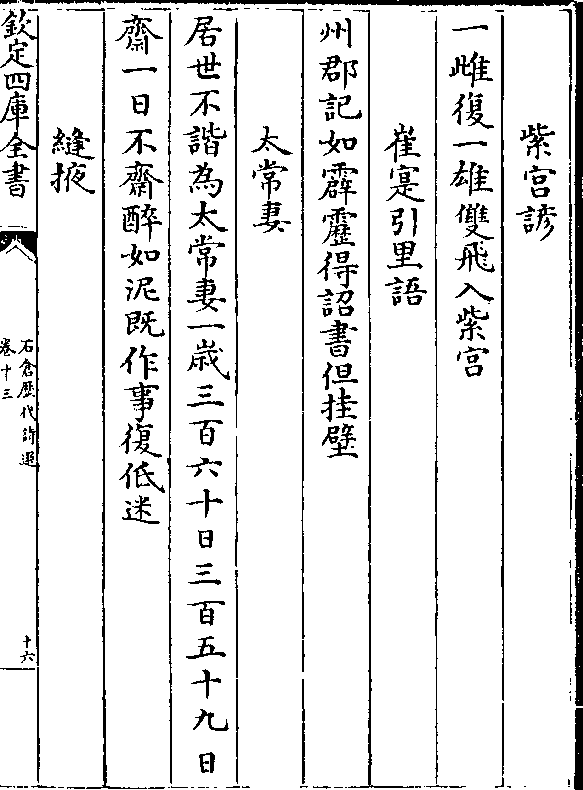 紫宫諺
一雌復一雄雙飛入紫宫
崔寔引里語
州郡記如霹靂得詔書但挂壁
太常妻
居世不諧為太常妻一歳三百六十日三百五十九日
齋一日不齋醉如泥既作事復低迷
縫掖
欽定四庫全書
石倉歷代詩選
卷十三
十六